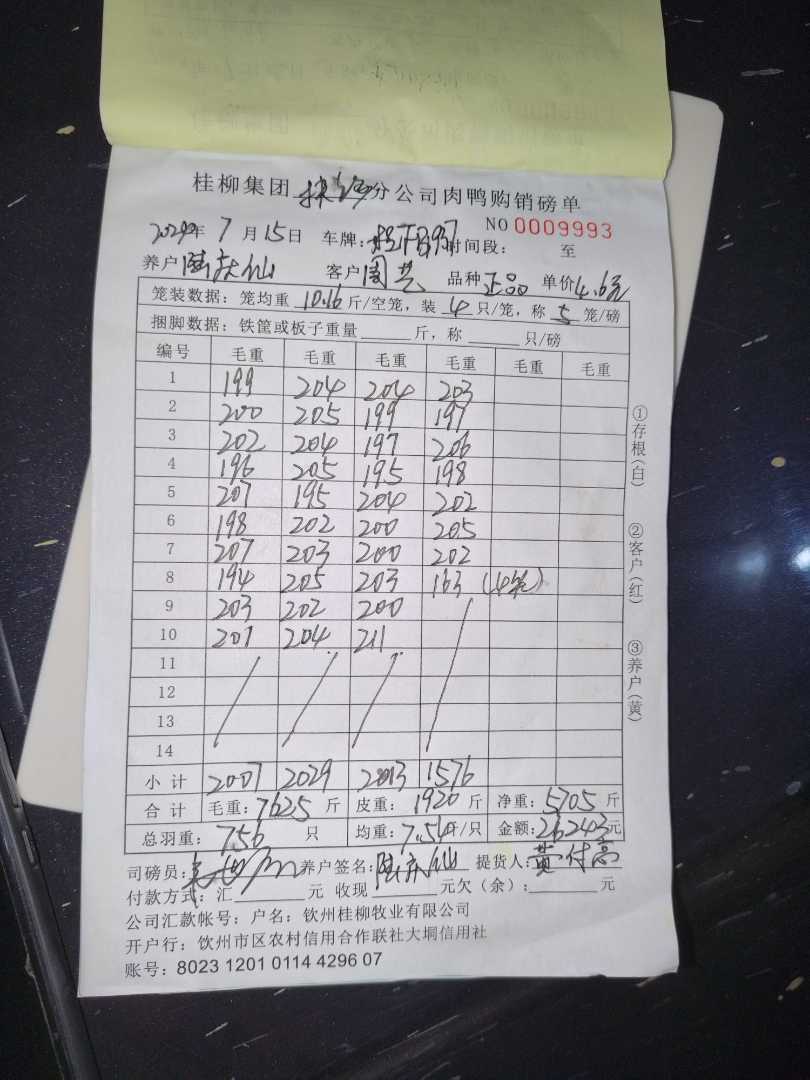 桂柳集团 分公司肉鸭购销磅单
NO 0009993
7月15日 车牌: 时间段: 至
养户 陆庆仙 客户 周芸 品种 正品 单价 4.6元
笼装数据:笼均重 10.16 斤/空笼,装 4 只/笼,称 5 笼/磅
捆脚数据:铁筐或板子重量 斤,称 只/磅
编号 毛重 毛重 毛重 毛重 毛重 毛重
1 199 204 204 203
2 200 205 199 197
3 202 204 197 206
4 196 205 195 198
5 207 195 204 202
6 198 202 200 205
7 207 203 200 202
8 194 205 203 163 (4笼)
9 203 202 200
10 201 204 211
11
12
13
14
小计 2007 2029 2013 1576
合计 毛重:7625 斤 皮重:1920 斤 净重:5705 斤
总羽重:756 只 均重:7.54斤/只 金额:26243元
司磅员: 养户签名:陆庆仙 提货人:黄付高
付款方式:汇 元 收现 元欠(余): 元
公司汇款帐号:户名:钦州桂柳牧业有限公司
开户行:钦州市区农村信用合作联社大垌信用社
账号:8023 1201 0114 4296 07
①存根(白)
②客户(红)
③养户(黄)